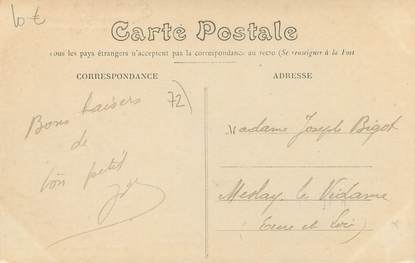 10 €
Carte Postale
Tous les pays étrangers n'acceptent pas la correspondance au recto (Se renseigner à la Post
CORRESPONDANCE
ADRESSE
Bons baisers
de
ton petit
72)
Madame Joseph Bigot
Meslay le Vidame
Eure et Loir